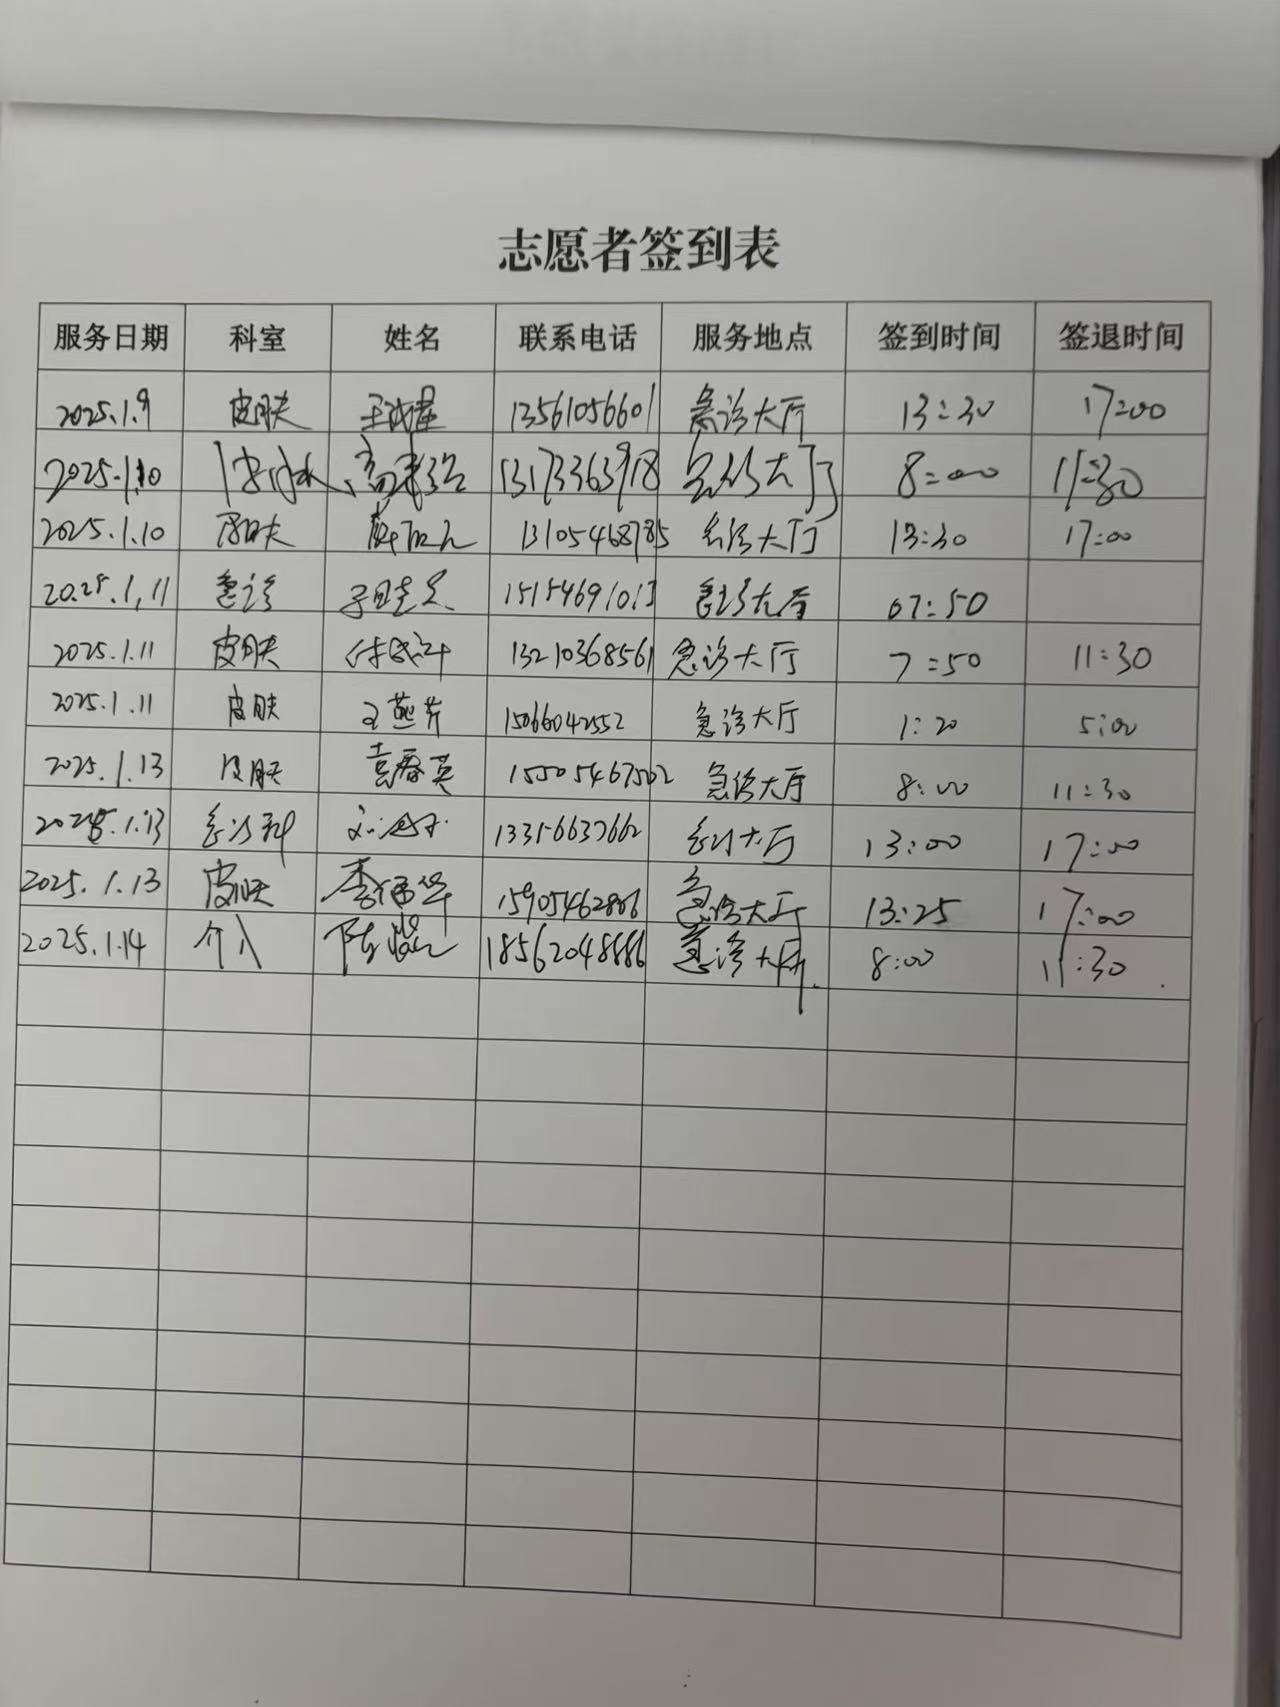 志愿者签到表
服务日期 科室 姓名 联系电话 服务地点 签到时间 签退时间
2025.1.9 皮肤 13561056601 急诊大厅 13:30 17:00
2025.1.10 13173363918 急诊大厅 8:00 11:30
2025.1.10 皮肤 13105468785 急诊大厅 13:30 17:00
2025.1.11 急诊 15154691013 急诊大厅 07:50
2025.1.11 皮肤 13210368561 急诊大厅 7:50 11:30
2025.1.11 皮肤 王燕芹 15066042552 急诊大厅 1:20 5:00
2025.1.13 皮肤 袁春英 15505467502 急诊大厅 8:00 11:30
2025.1.13 急诊科 13356637662 急诊大厅 13:00 17:00
2025.1.13 皮肤 15905462806 急诊大厅 13:25 17:00
2025.1.14 个人 18562048886 急诊大厅 8:00 11:30